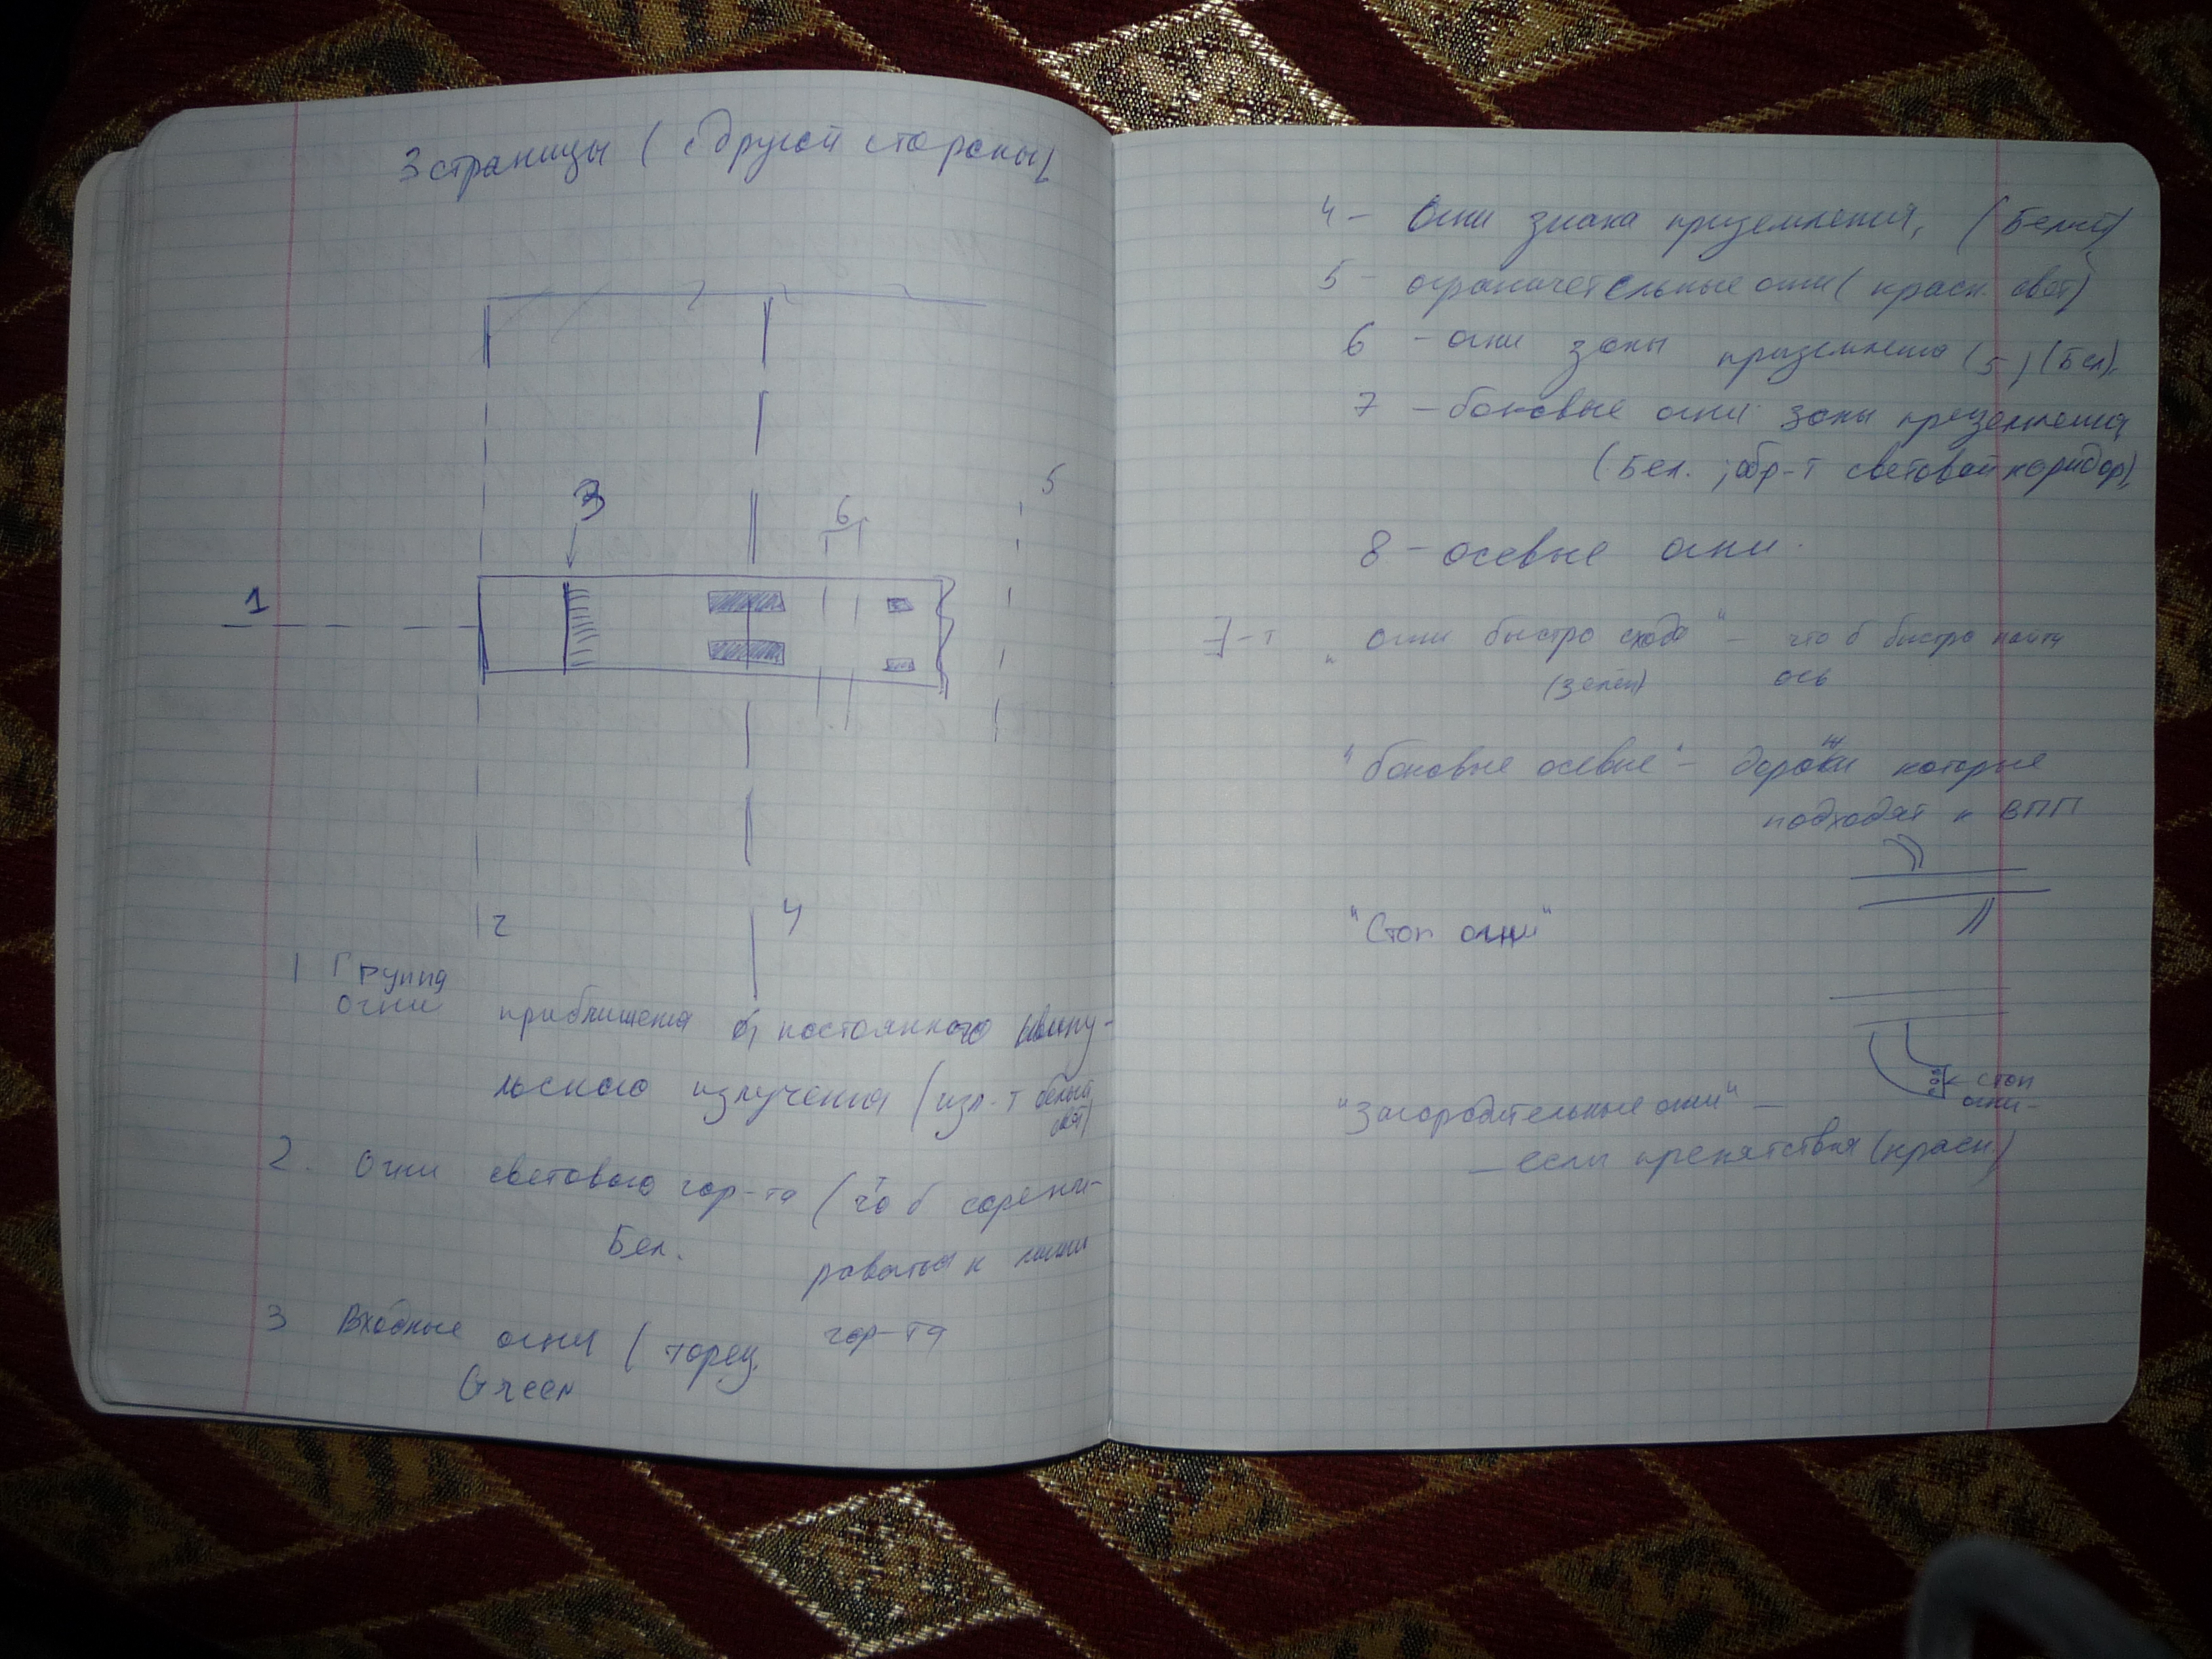 3 страницы ( с другой стороны)
5
3
6
1
2
4
1 Группа
огни приблишения б, постоянного импу-
льсного излучения (изл-т белый
свет)
2. Огни светового гор-та (что б сорентi-
Бел. роваться к линии
3 Входные огни ( торец. гор-та
Green
4 - Огни знака приземления, (Белый)
5 - ограничетельные огни ( красн. свет)
6 - огни зоны приземления (5) (Бел),
7 - боковые огни зоны преземления
(Бел. ; обр-т световой коридор),
8 - осевые огни.
Э-т " огни быстро схода " - что б быстро найти
(зелен) ось
"боковые осевые" - дорожки которые
подходят к ВПП
"Стоп огни"
стоп
огни -
"Загородительные огни" -
- если препятствия (красн.)